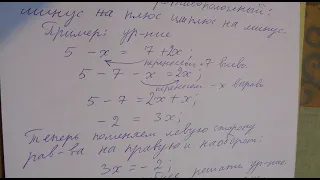 минус на плюс и плюс на минус.
Пример: ур-ние
5 - x = 7 + 2x;
переносим 7 влево
5 - 7 - x = 2x;
переносим - x вправо
5 - 7 = 2x + x;
-2 = 3x;
Теперь поменяем левую сторону
рав-ва на правую и наоборот:
3x = -2;
решать ур-ние.